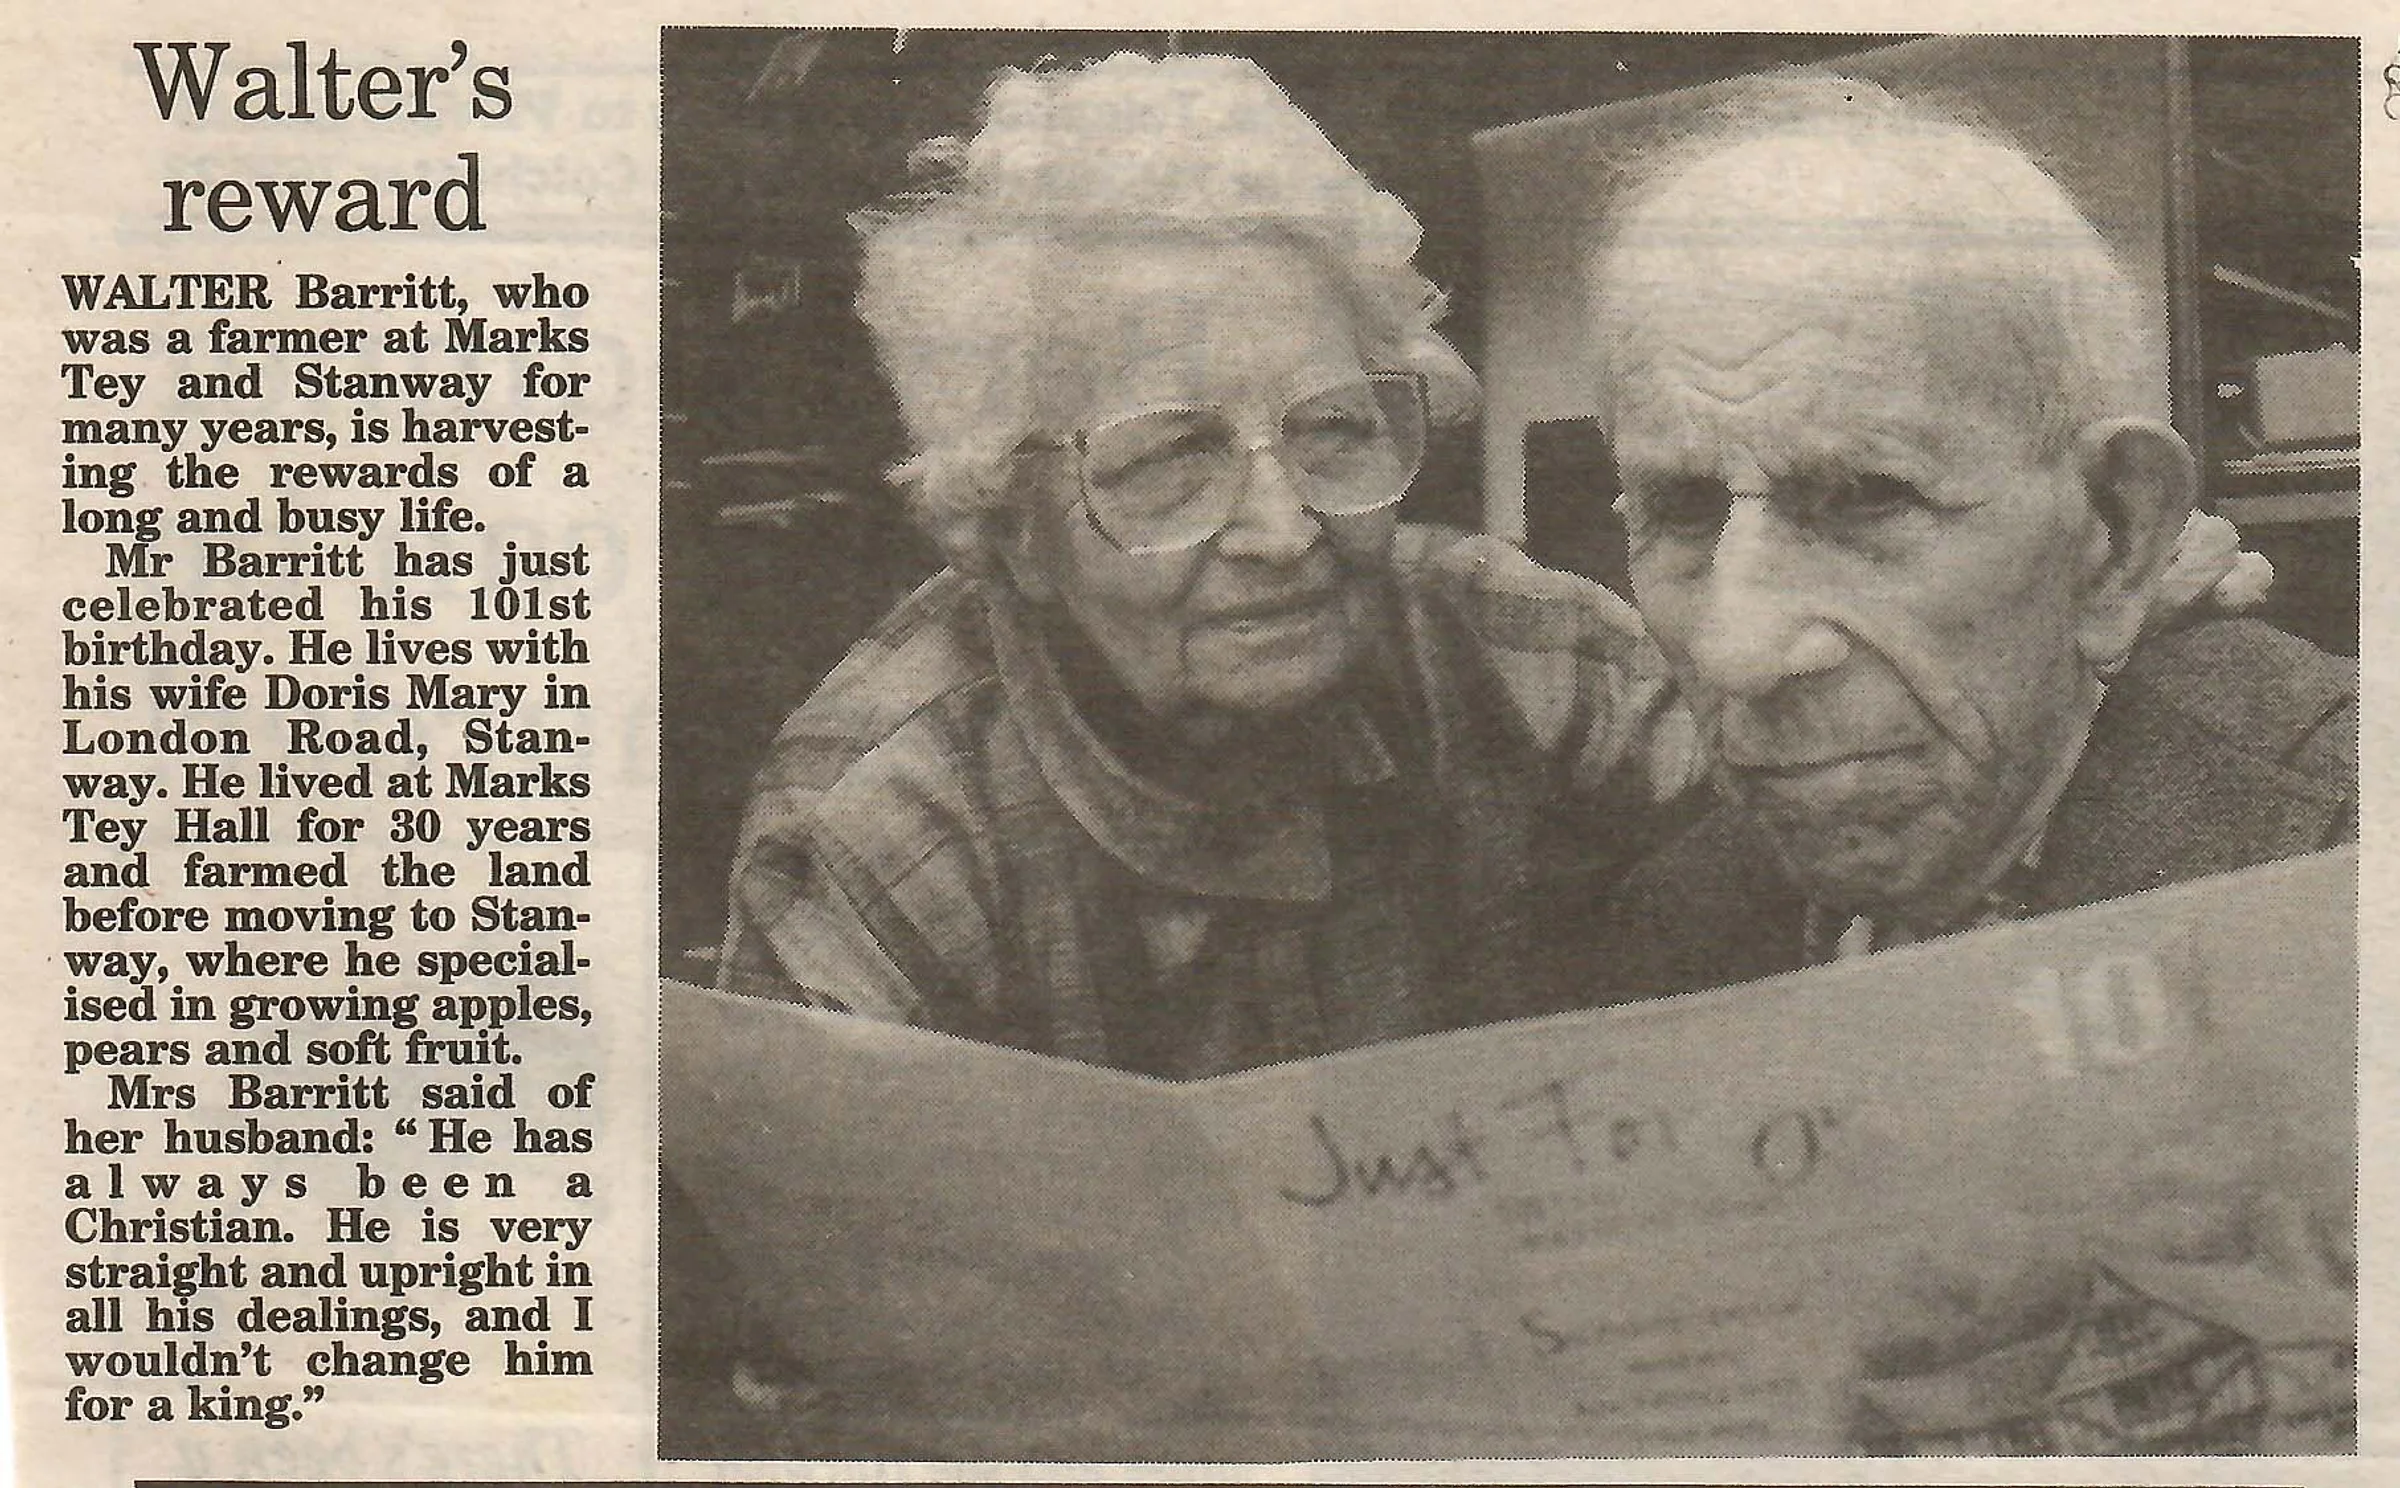 Walter's
reward
WALTER Barritt, who
was a farmer at Marks
Tey and Stanway for
many years, is harvest-
ing the rewards of a
long and busy life.
Mr Barritt has just
celebrated his 101st
birthday. He lives with
his wife Doris Mary in
London Road, Stan-
way. He lived at Marks
Tey Hall for 30 years
and farmed the land
before moving to Stan-
way, where he special-
ised in growing apples,
pears and soft fruit.
Mrs Barritt said of
her husband: “He has
always been a
Christian. He is very
straight and upright in
all his dealings, and I
wouldn't change him
for a king.”
101
Just For